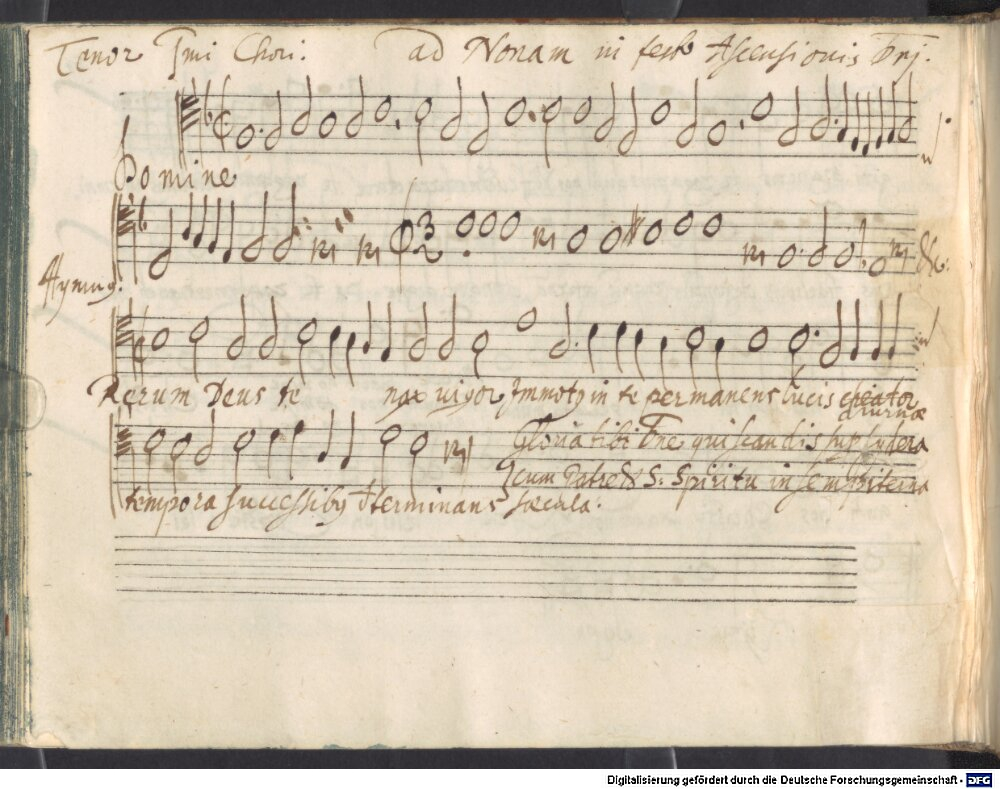 Tenor Imi Chori: ad Nonam in festo Ascensionis Dnj.
Domine
&c:
Hymnus.
Rerum Deus te nax vigor Immotus in te permanens lucis creator
diurnæ
Gloria tibi Dne qui scandis sup sydera
cum Patre & S. Spiritu in sempiterna
tempora successibus determinans sæcula.
Digitalisierung gefördert durch die Deutsche Forschungsgemeinschaft - DFG